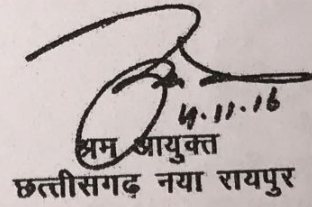 4.11.16
श्रम आयुक्त
छत्तीसगढ़ नया रायपुर